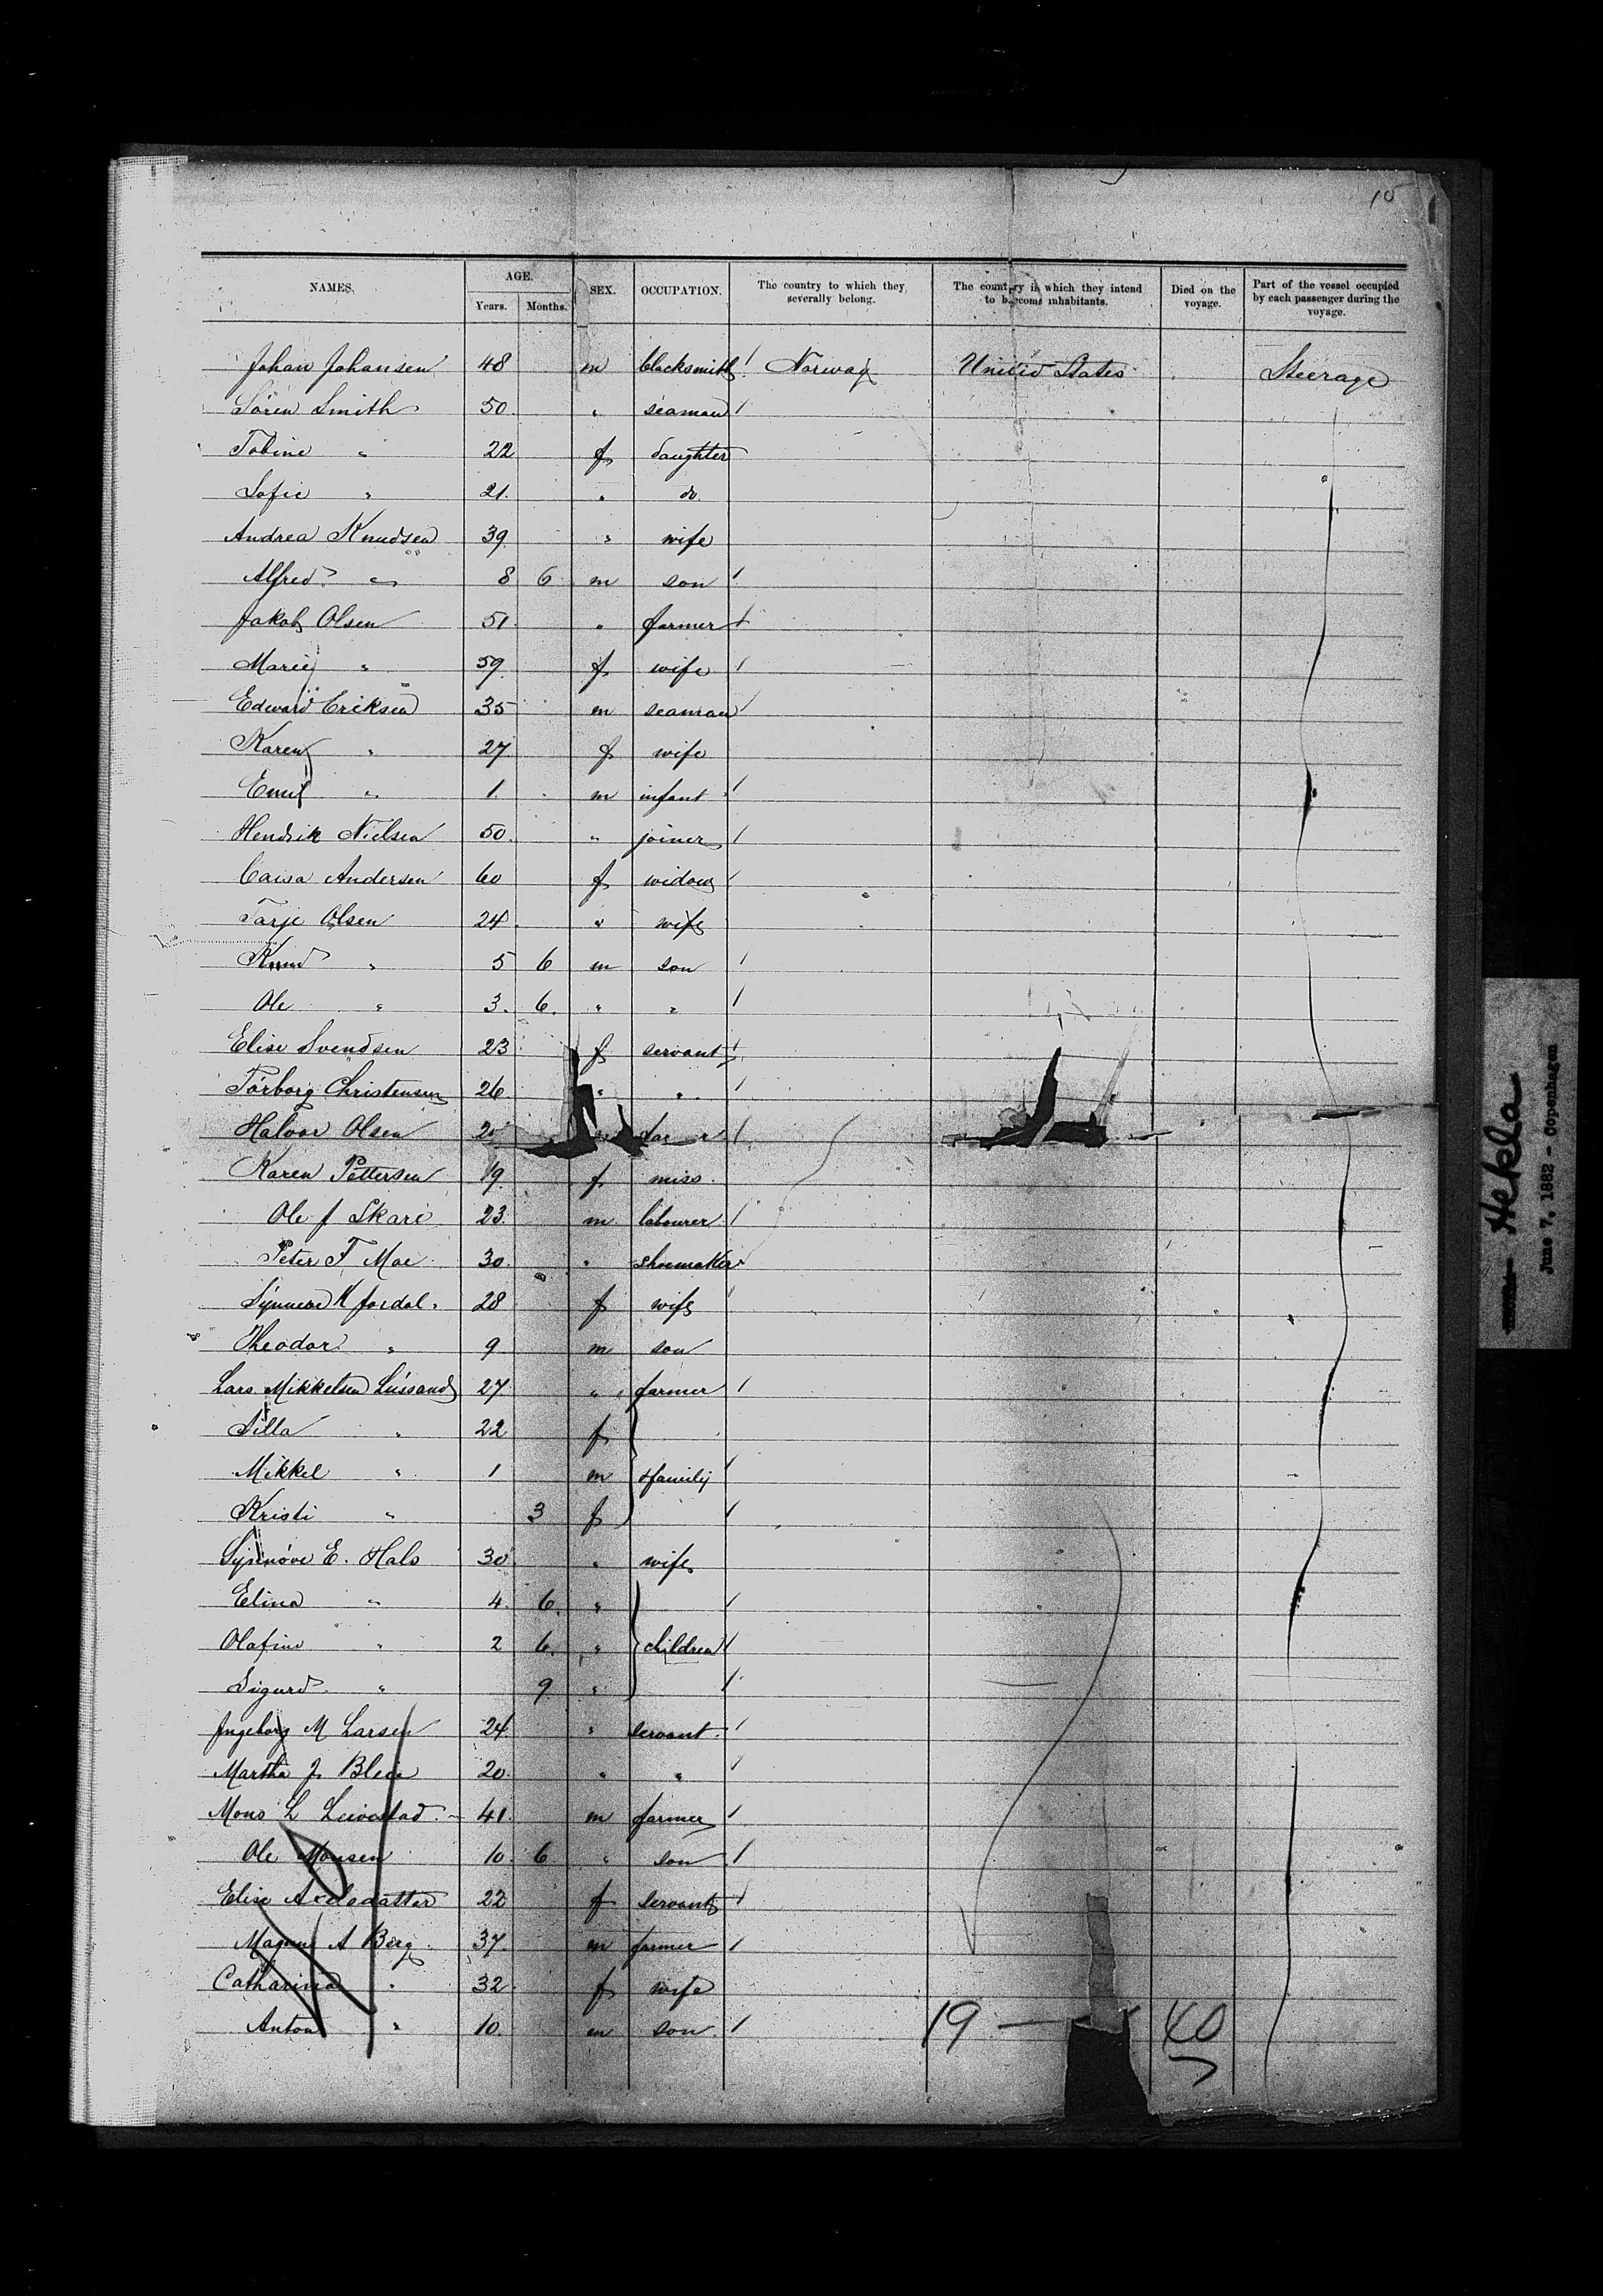 10
NAMES. AGE. SEX. OCCUPATION. The country to which they severally belong. The country in which they intend to become inhabitants. Died on the voyage. Part of the vessel occupied by each passenger during the voyage.
Years. Months.
Johan Johansen 48 m blacksmith / Norway United States Steerage
Sören Smith 50. " seaman /
Tobine " 22 f daughter
Sofie " 21. " do.
Andrea Knudsen 39. " wife
Alfred " 8 6 m son /
Jakob Olsen 51. " farmer /
Marie " 59. f wife /
Edward Eriksen 35 m seaman /
Karen " 27 f wife
Emil " 1. m infant /
Hendrik Nielsen 50. " joiner /
Caisa Andersen 60 f widow /
Tarje Olsen 24. " wife
Knud " 5 6 m son /
Ole " 3. 6. " " /
Elise Svendsen 23 f servant /
Torborg Christensen 26 " " /
Halvor Olsen /
Karen Pettersen 19 f miss.
Ole J Skare 23. m labourer /
Peter F Moe 30. " shoemaker
K Jordal 28 f wife /
Theodor " 9 m son
Lars Mikkelsen 27 " farmer /
Silla " 22 f
Mikkel " 1 m family /
Kristi " 3 f /
Synnöve E. Hals 30. " wife
Elina " 4. 6. " /
Olafine " 2 6. " children /
Sigurd " 9 " /
Ingeborg M Larsen 24. " servant. /
Martha J. Bleie 20. " " /
Mons L 41. m farmer /
Ole Monsen 10. 6 " son /
Elise Axelsdatter 22 f servant /
Magnus A Berg. 37. m farmer /
Catharina " 32. f wife
Anton " 10. m son /
19 — 40
Hekla
June 7, 1882 - Copenhagen